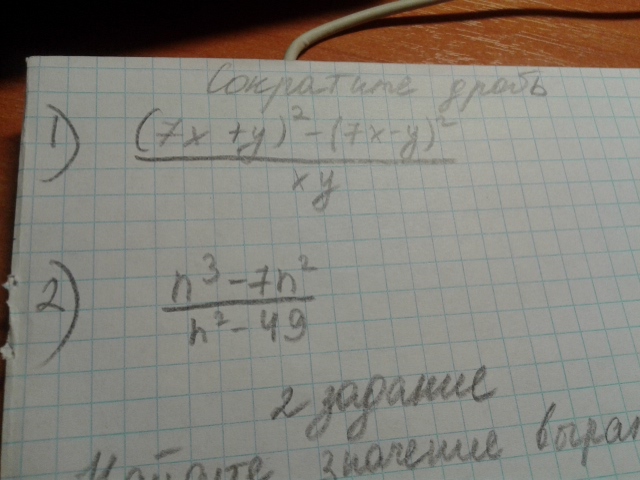 Сократите дробь
1) (7x+y)²-(7x-y)²
xy
2) n³-7n²
n²-49
2 задание
Найдите значение выраж